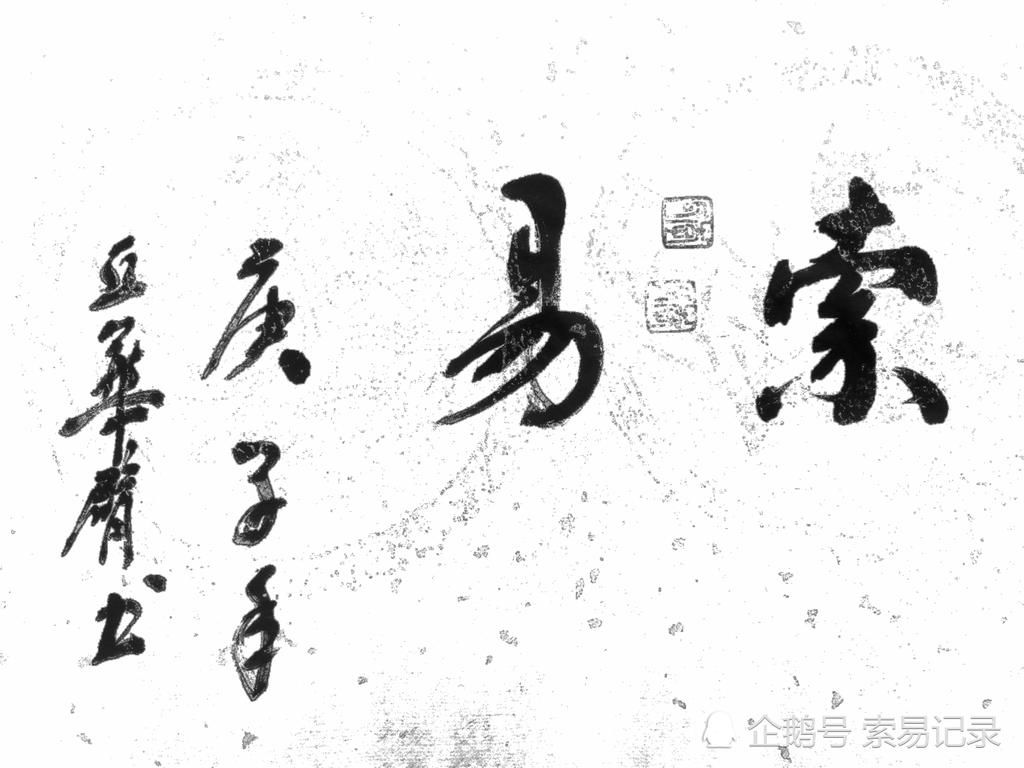 索易
庚子年
丘华爵书
企鹅号 索易记录